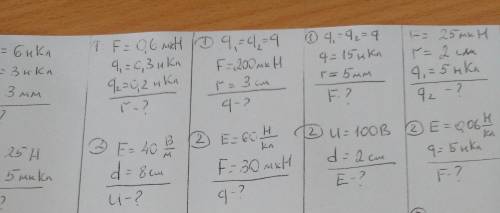 = 6 нКл
= 3 нКл
3 мм
?
25 Н
5 мкКл
?
1 F = 0,6 мкН
q₁ = 0,3 нКл
q₂ = 0,2 нКл
r - ?
③ E = 40 В/м
d = 8 см
U - ?
① q₁ = q₂ = q
F = 200 мкН
r = 3 см
q - ?
② E = 60 Н/Кл
F = 30 мкН
q - ?
① q₁ = q₂ = q
q = 15 нКл
r = 5 мм
F - ?
② U = 100 В
d = 2 см
E - ?
F = 25 мкН
r = 2 см
q₁ = 5 нКл
q₂ - ?
② E = 0,06 Н/Кл
q = 5 нКл
F - ?